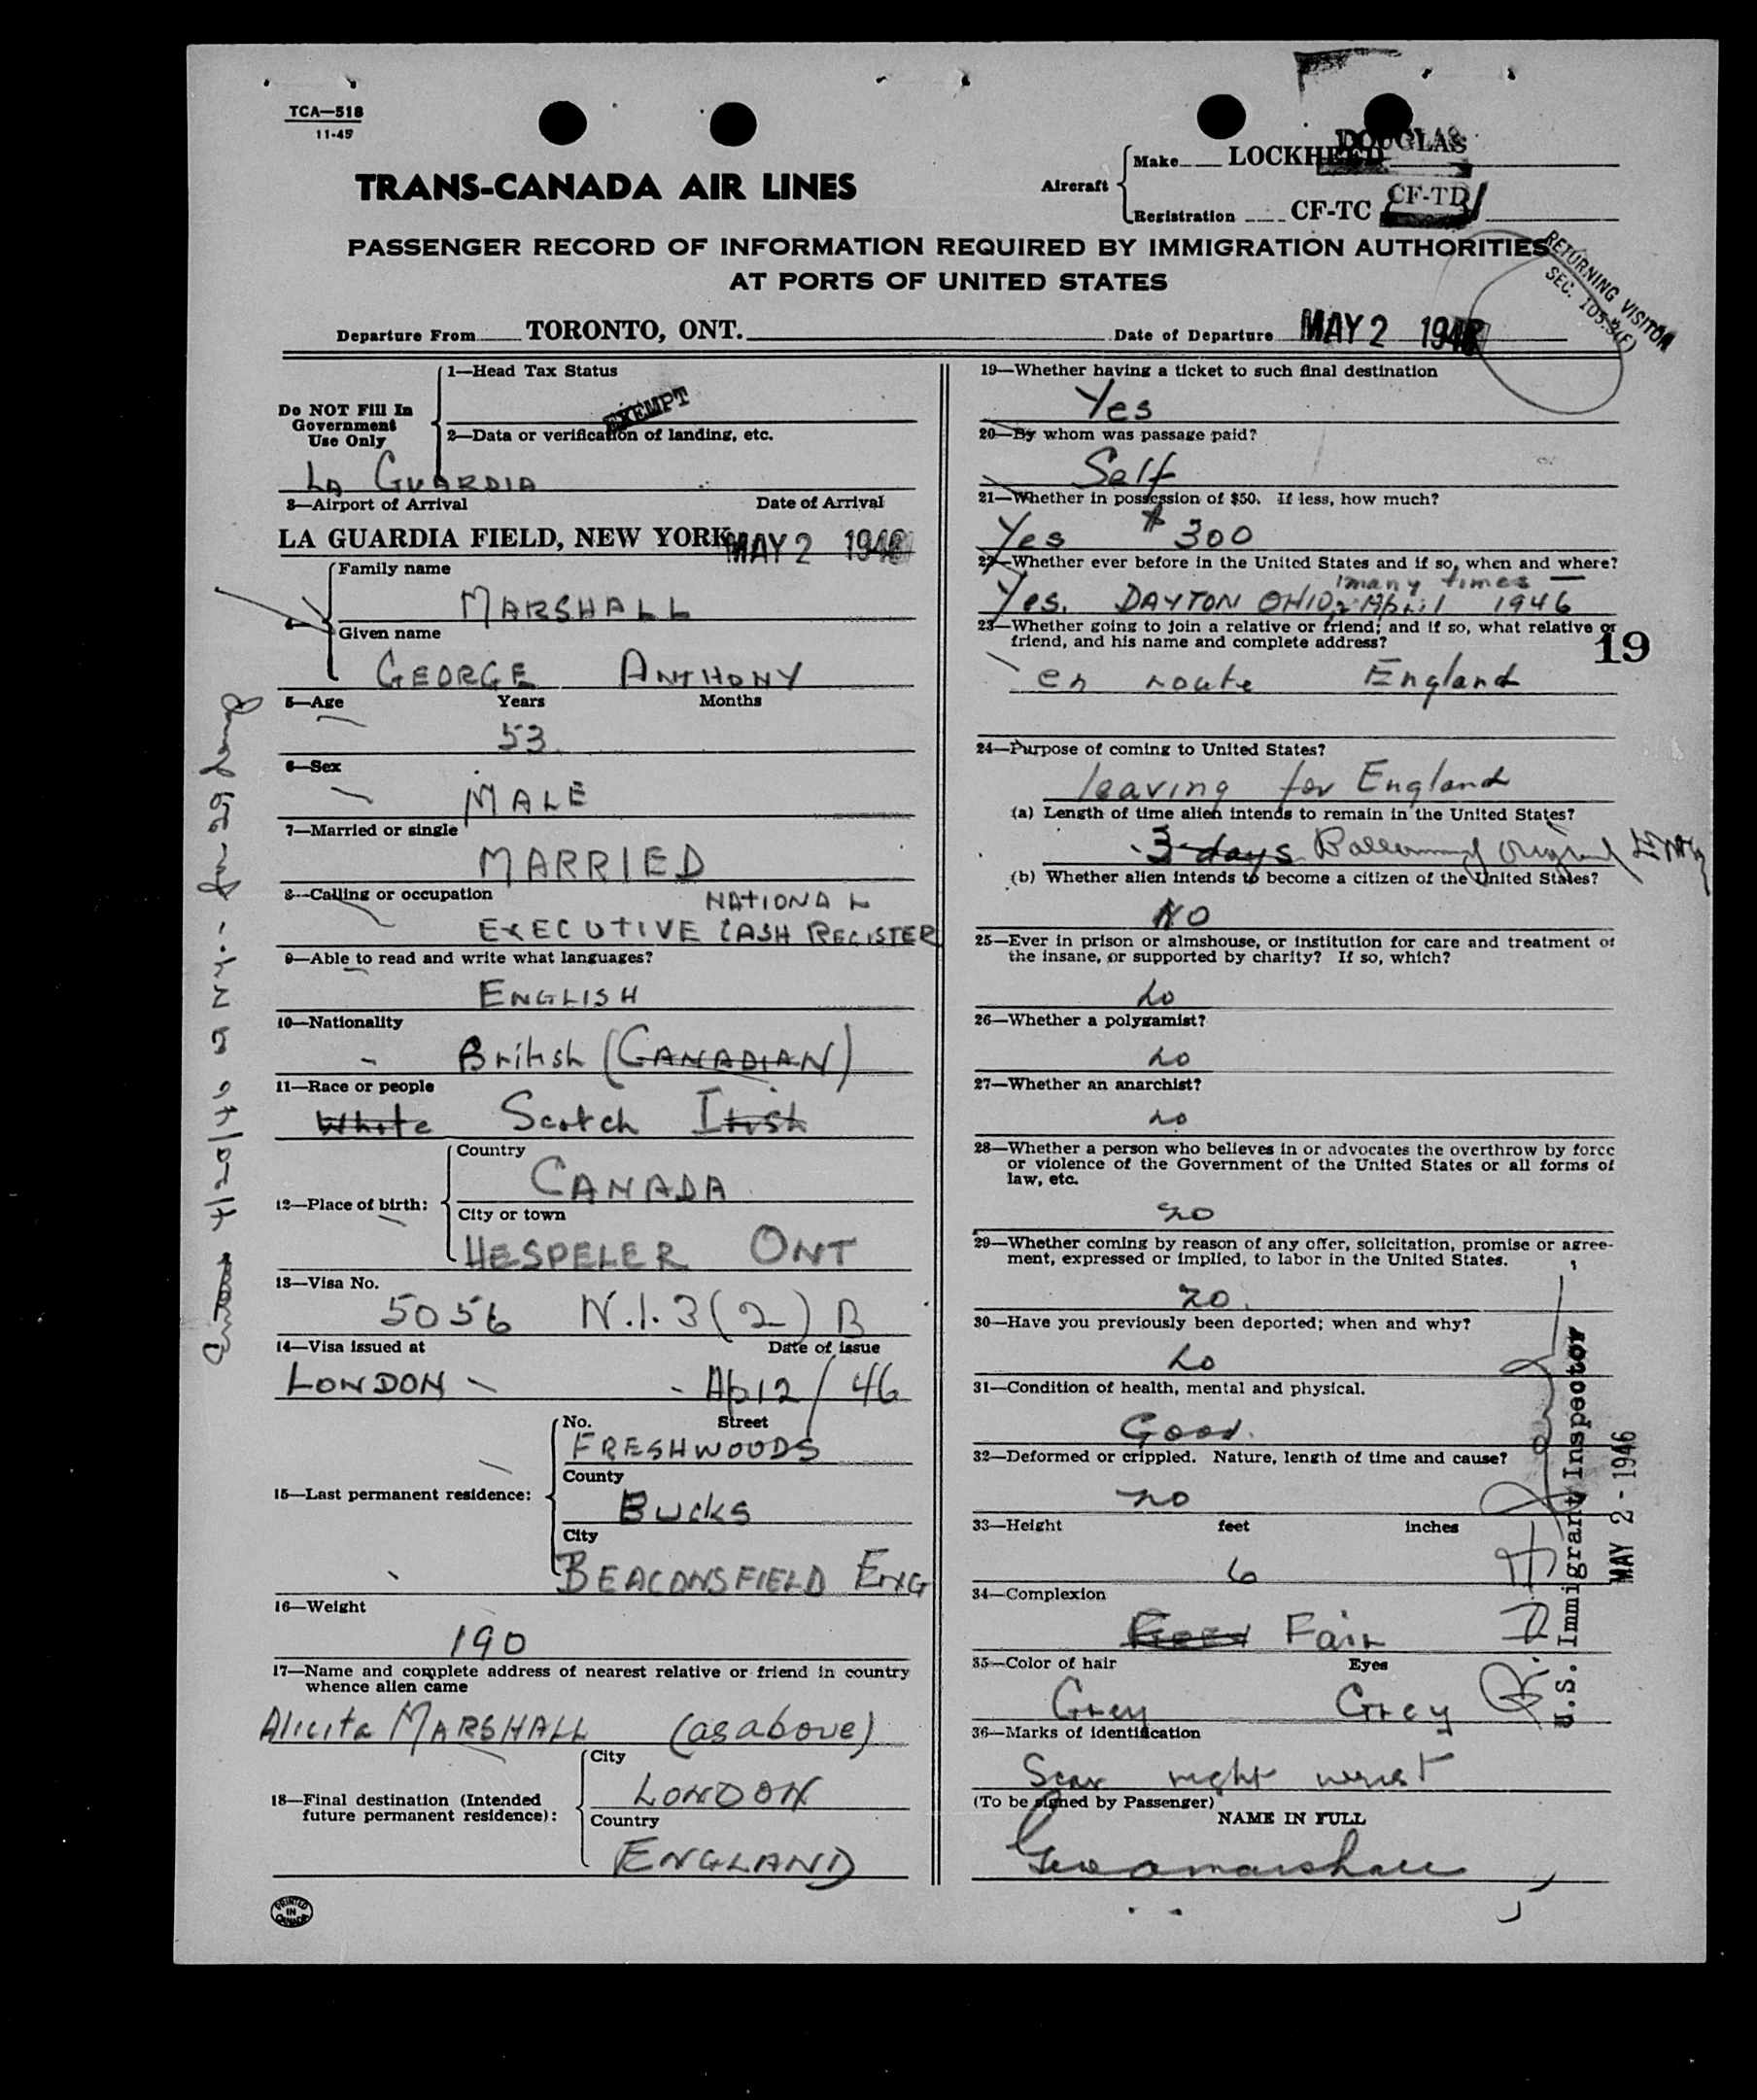 TCA—518
11-45
DOUGLAS
Aircraft Make LOCKHEED
TRANS-CANADA AIR LINES
CF-TD
Registration CF-TC
PASSENGER RECORD OF INFORMATION REQUIRED BY IMMIGRATION AUTHORITIES
AT PORTS OF UNITED STATES
RETURNING VISITOR
Departure From TORONTO, ONT. Date of Departure MAY 2
Do NOT Fill In
Government
Use Only
1—Head Tax Status
EXEMPT
2—Data or verification of landing, etc.
LA GUARDIA
3—Airport of Arrival Date of Arrival
LA GUARDIA FIELD, NEW YORK MAY 2
4—
Family name
MARSHALL
Given name
GEORGE ANTHONY
5—Age Years Months
53
6—Sex
MALE
7—Married or single
MARRIED
8—Calling or occupation
NATIONAL
EXECUTIVE CASH REGISTER
9—Able to read and write what languages?
ENGLISH
10—Nationality
British (CANADIAN)
11—Race or people
White Scotch Irish
12—Place of birth:
Country
CANADA
City or town
HESPELER ONT
13—Visa No.
5056 N.I. 3(2) B
14—Visa issued at Date of issue
LONDON - Ap 12/46
15—Last permanent residence:
No. Street
FRESHWOODS
County
Bucks
City
BEACONSFIELD ENG
16—Weight
190
17—Name and complete address of nearest relative or friend in country
whence alien came
Alicita MARSHALL (as above)
18—Final destination (Intended
future permanent residence):
City
LONDON
Country
ENGLAND
PRINTED
IN
CANADA
19—Whether having a ticket to such final destination
Yes
20—By whom was passage paid?
Self
21—Whether in possession of $50. If less, how much?
Yes $300
22—Whether ever before in the United States and if so, when and where?
many times —
Yes. DAYTON OHIO, April 1946
23—Whether going to join a relative or friend; and if so, what relative or
friend, and his name and complete address?
19
en route England
24—Purpose of coming to United States?
leaving for England
(a) Length of time alien intends to remain in the United States?
3 days
(b) Whether alien intends to become a citizen of the United States?
NO
25—Ever in prison or almshouse, or institution for care and treatment of
the insane, or supported by charity? If so, which?
no
26—Whether a polygamist?
no
27—Whether an anarchist?
no
28—Whether a person who believes in or advocates the overthrow by force
or violence of the Government of the United States or all forms of
law, etc.
no
29—Whether coming by reason of any offer, solicitation, promise or agree-
ment, expressed or implied, to labor in the United States.
no.
30—Have you previously been deported; when and why?
no
31—Condition of health, mental and physical.
Good.
32—Deformed or crippled. Nature, length of time and cause?
no
33—Height feet inches
6
34—Complexion
Fair
35—Color of hair Eyes
Grey Grey
36—Marks of identification
Scar right wrist
(To be signed by Passenger)
NAME IN FULL
Geo a marshall
U.S. Immigrant Inspector
MAY 2 - 1946